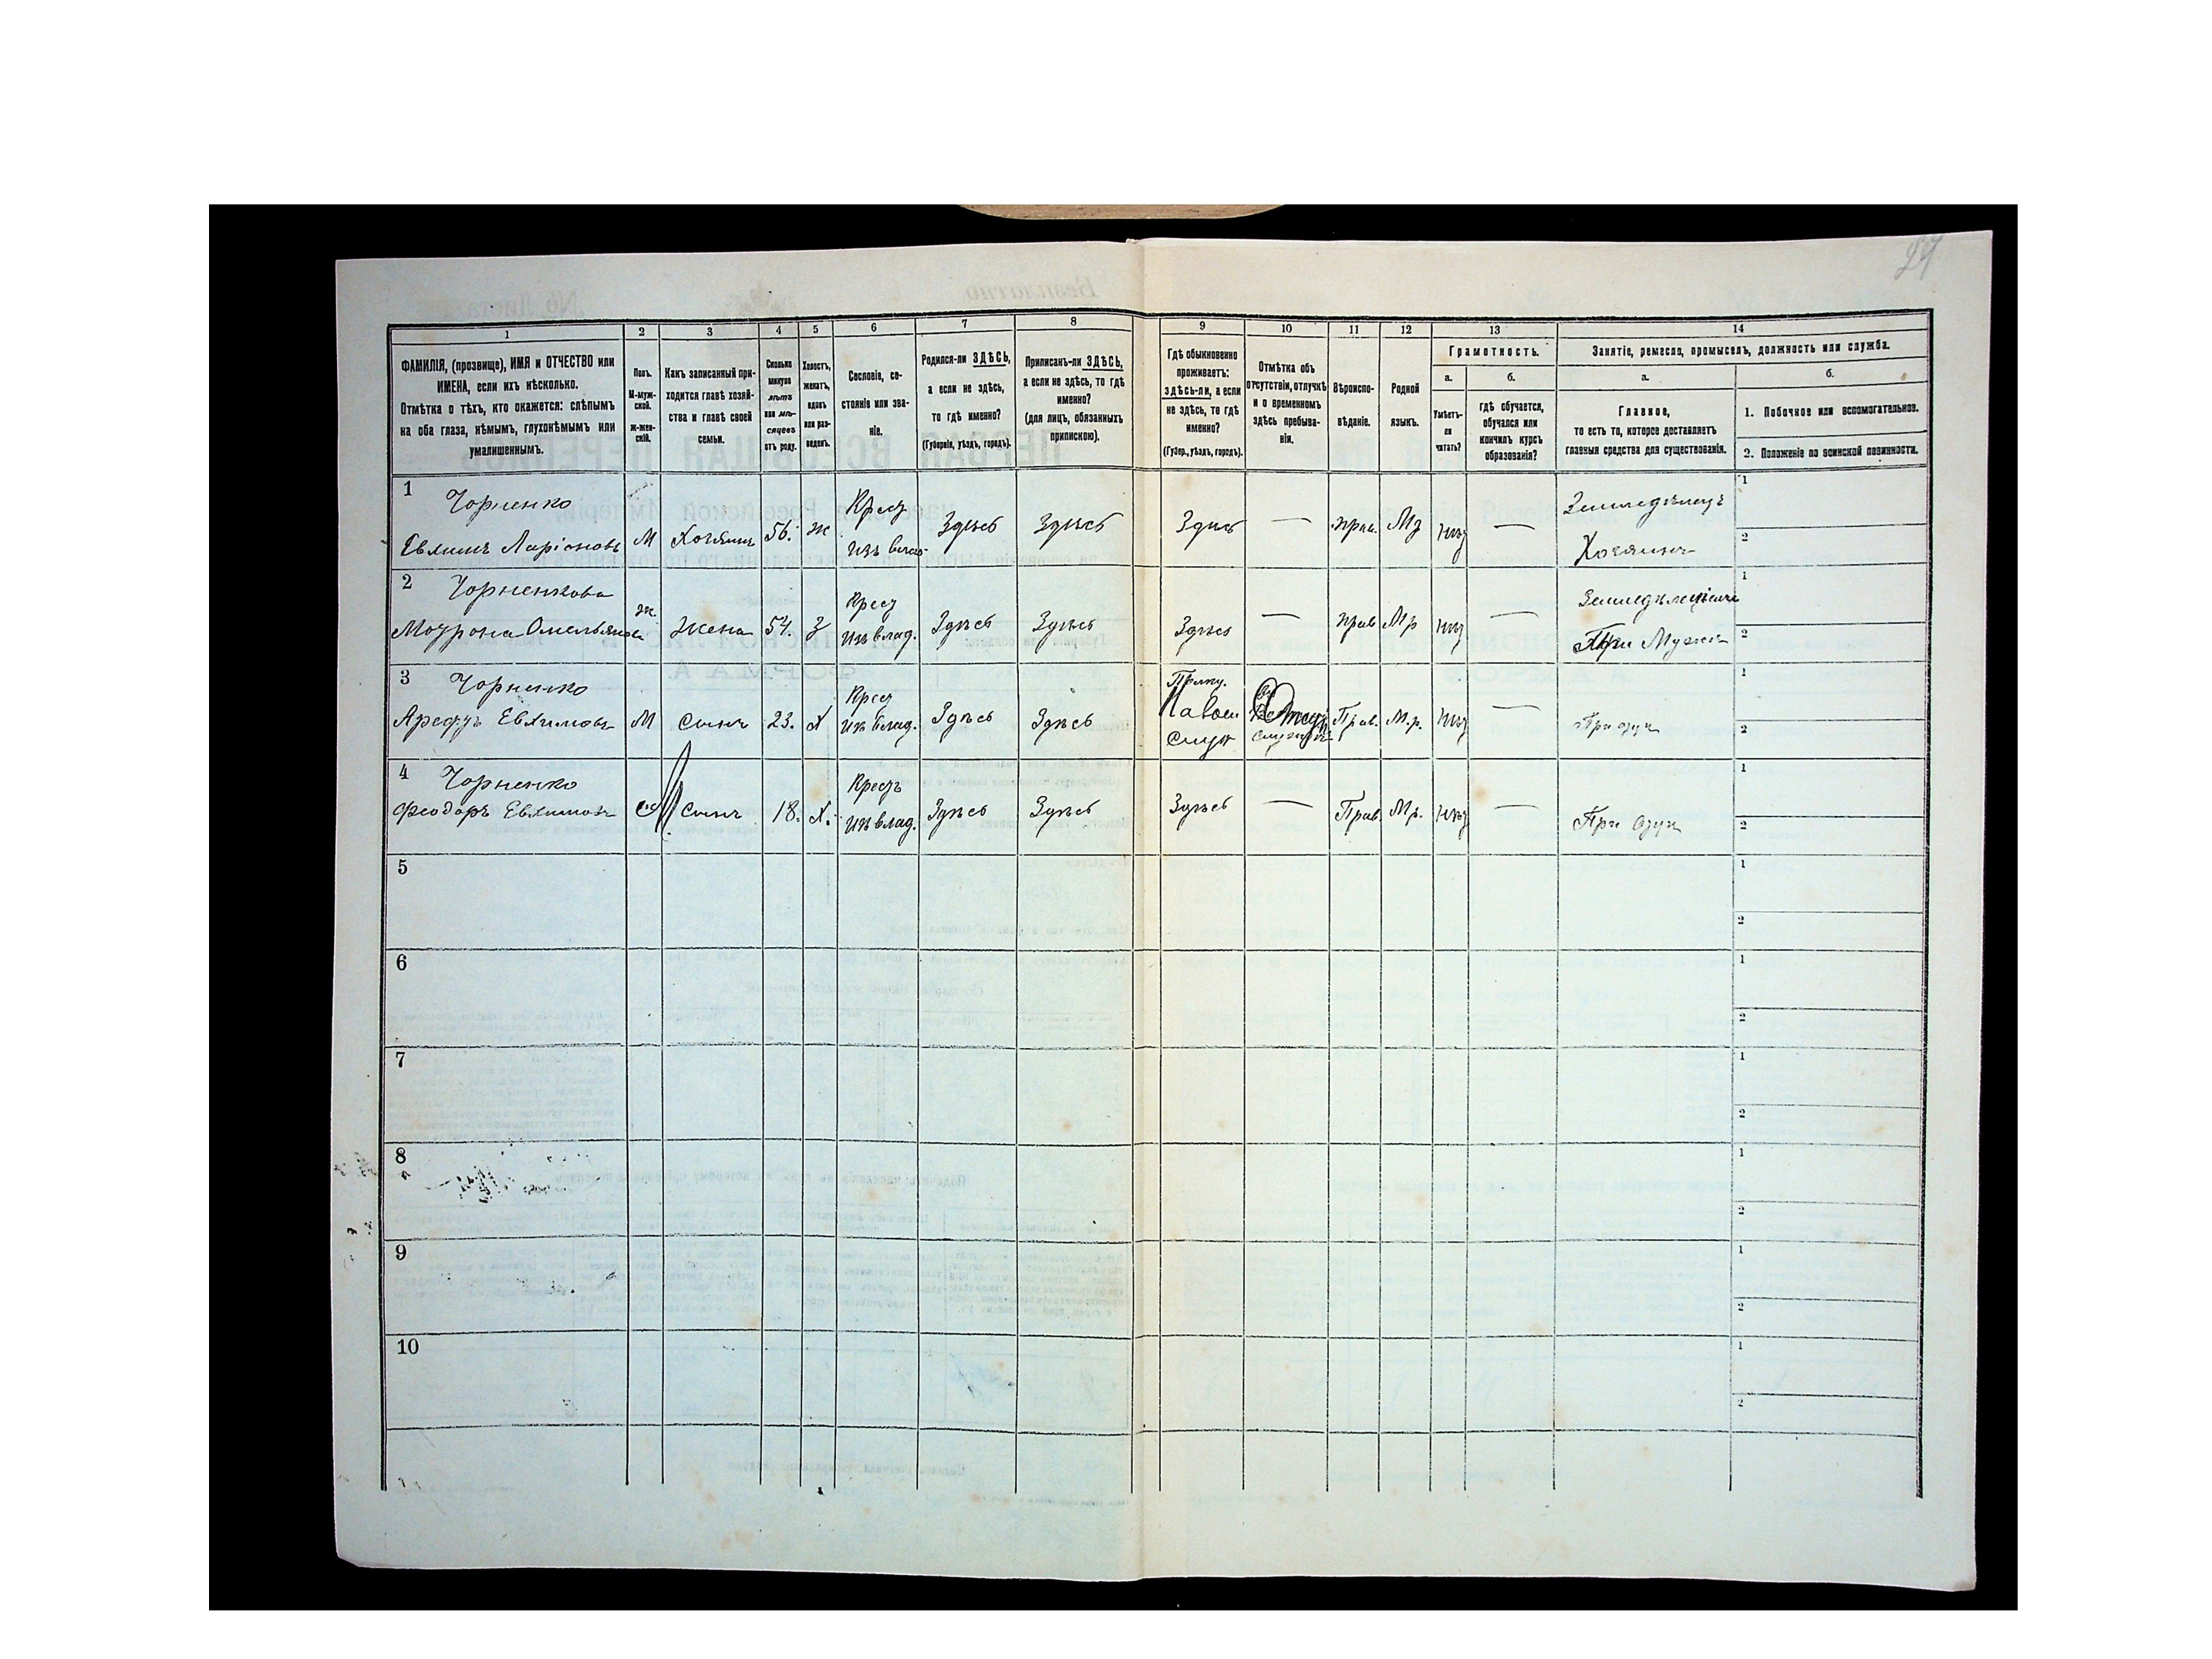 24
1
2
3
4
5
6
7
8
9
10
11
12
13
14
ФАМИЛІЯ, (прозвище), ИМЯ и ОТЧЕСТВО или
ИМЕНА, если ихъ нѣсколько.
Отмѣтка о тѣхъ, кто окажется: слѣпымъ
на оба глаза, нѣмымъ, глухонѣмымъ или
умалишеннымъ.
Полъ.
М-муж-
ской.
ж-жен-
скій.
Какъ записанный при-
ходится главѣ хозяй-
ства и главѣ своей
семьи.
Сколько
минуло
лѣтъ
или мѣ-
сяцевъ
отъ роду.
Холостъ,
женатъ,
вдовъ
или раз-
веденъ.
Сословіе, со-
стояніе или зва-
ніе.
Родился-ли ЗДѢСЬ,
а если не здѣсь,
то гдѣ именно?
(Губернія, уѣздъ, городъ).
Приписанъ-ли ЗДѢСЬ,
а если не здѣсь, то гдѣ
именно?
(для лицъ, обязанныхъ
припискою).
Гдѣ обыкновенно
проживаетъ:
здѣсь-ли, а если
не здѣсь, то гдѣ
именно?
(Губер., уѣздъ, городъ).
Отмѣтка объ
отсутствіи, отлучкѣ
и о временномъ
здѣсь пребыва-
ніи.
Вѣроиспо-
вѣданіе.
Родной
языкъ.
Грамотность.
а.
Умѣетъ-
ли
читать?
б.
гдѣ обучается,
обучался или
кончилъ курсъ
образованія?
Занятіе, ремесло, промыселъ, должность или служба.
а.
Главное,
то есть то, которое доставляетъ
главныя средства для существованія.
б.
1. Побочное или вспомогательное.
2. Положеніе по воинской повинности.
1 Чорненко Крест Земледѣлецъ 1
Евхимъ Ларіоновъ М Хозяинъ 56. ж Изъ влад. Здѣсь Здѣсь Здѣсь — прав. нѣт — Хозяинъ 2
2 Чорненкова ж Крест 1
Омельянова Жена 54. З Изъ влад. Здѣсь Здѣсь Здѣсь — прав Мр нѣт — При Мужѣ 2
3 Чорненко Крест 1
Арефъ Евхимовъ М Сынъ 23. Х Изъ влад. Здѣсь Здѣсь Прав. М.р. нѣт — При отцѣ 2
4 Чорненко Крестъ 1
Феодоръ Евхимовъ Сынъ 18. Х. Изъ влад. Здѣсь Здѣсь Здѣсь — Прав. Мр. нѣт — При отцѣ 2
5 1
2
6 1
2
7 1
2
8 1
2
9 1
2
10 1
2